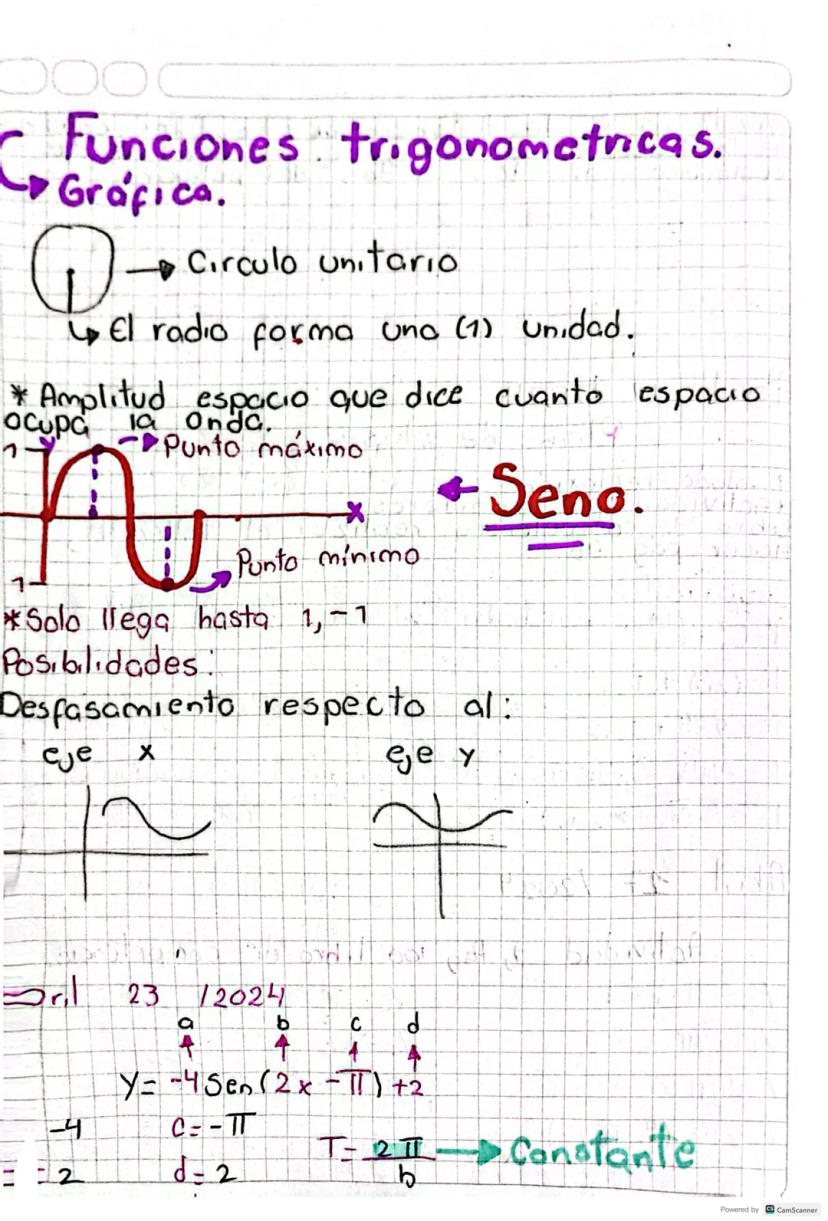 Funciones trigonometricas.
Gráfica.
Circulo unitario
El radio forma una (1) unidad.
* Amplitud espacio que dice cuanto espacio
ocupa la onda.
1
y
Punto máximo
Seno.
x
Punto mínimo
1-
*Solo llega hasta 1, -1
Posibilidades:
Desfasamiento respecto al:
eje x
eje y
23 /2024
a b c d
Y= -4 Sen (2x -π) +2
-4 c= -π
= 2 d= 2
T= 2π Constante
b
Powered by CS CamScanner